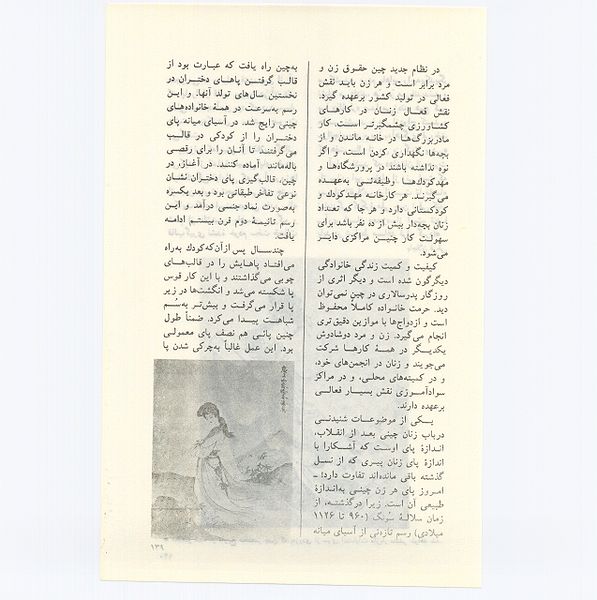 در نظام جدید چین حقوق زن و
مرد برابر است و هر زن باید نقش
فعالی در تولید کشور برعهده گیرد.
نقش فعال زنان در کارهای
کشاورزی چشمگیرتر است. کار
مادربزرگ‌ها در خانه ماندن و از
بچه‌ها نگهداری کردن است، و اگر
نوه نداشته باشند در پرورشگاه‌ها و
مهدکودک‌ها وظیفه‌ئی به‌عهده
می‌گیرند. هر کارخانه مهدکودک و
کودکستانی دارد و هر جا که تعداد
زنان بچه‌دار بیش از ده نفر باشد برای
سهولت کار چنین مراکزی دایر
می‌شود.
کیفیت و کمیت زندگی خانوادگی
دیگرگون شده است و دیگر اثری از
روزگار پدرسالاری در چین نمی‌توان
دید. حرمت خانواده کاملاً محفوظ
است و ازدواج‌ها با موازین دقیق‌تری
انجام می‌گیرد. زن و مرد دوشادوش
یکدیگر در همهٔ کارها شرکت
می‌جویند و زنان در انجمن‌های خود،
و در کمیته‌های محلی، و در مراکز
سوادآموزی نقش بسیار فعالی
برعهده دارند.
یکی از موضوعات شنیدنی
درباب زنان چینی بعد از انقلاب،
اندازهٔ پای اوست که آشکارا با
اندازهٔ پای زنان پیری که از نسل
گذشته باقی مانده‌اند تفاوت دارد: ــ
امروز پای هر زن چینی به‌اندازهٔ
طبیعی آن است. زیرا درگذشته، از
زمان سلالهٔ سُونگ (۹۶۰ تا ۱۱۲۶
میلادی) رسم تازه‌ئی از آسیای میانه
به‌چین راه یافت که عبارت بود از
قالب گرفتن پاهای دختران در
نخستین سال‌های تولد آنها. و این
رسم به‌سرعت در همهٔ خانواده‌های
چینی رایج شد. در آسیای میانه پای
دختران را از کودکی در قالب
می‌گرفتند تا آنان را برای رقصی
باله‌مانند آماده کنند. در آغاز، در
چین، قالب‌گیری پای دختران نشان
نوعی تفاخر طبقاتی بود و بعد یکسره
به‌صورت نماد جنسی درآمد و این
رسم تا نیمهٔ دوم قرن بیستم ادامه
یافت.
چندسال پس از آن که کودک به‌راه
می‌افتاد پاهایش را در قالب‌های
چوبی می‌گذاشتند و با این کار قوس
پا شکسته می‌شد و انگشت‌ها در زیر
پا قرار می‌گرفت و بیش‌تر به‌سُم
شباهت پیدا می‌کرد. ضمناً طول
چنین پائی هم نصف پای معمولی
بود. این عمل غالباً به‌چرکی شدن پا
۱۳۹